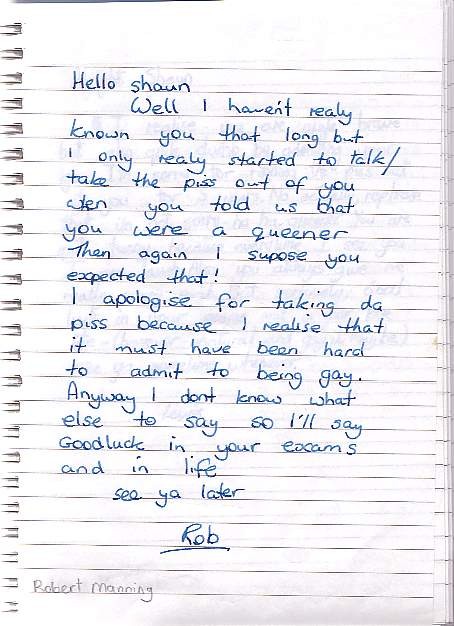 Hello shaun
Well I haven't realy
known you that long but
I only realy started to talk/
take the piss out of you
wen you told us that
you were a queener
Then again I supose you
expected that!
I apologise for taking da
piss because I realise that
it must have been hard
to admit to being gay.
Anyway I dont know what
else to say so I'll say
Goodluck in your exams
and in life
see ya later
Rob
Robert Manning